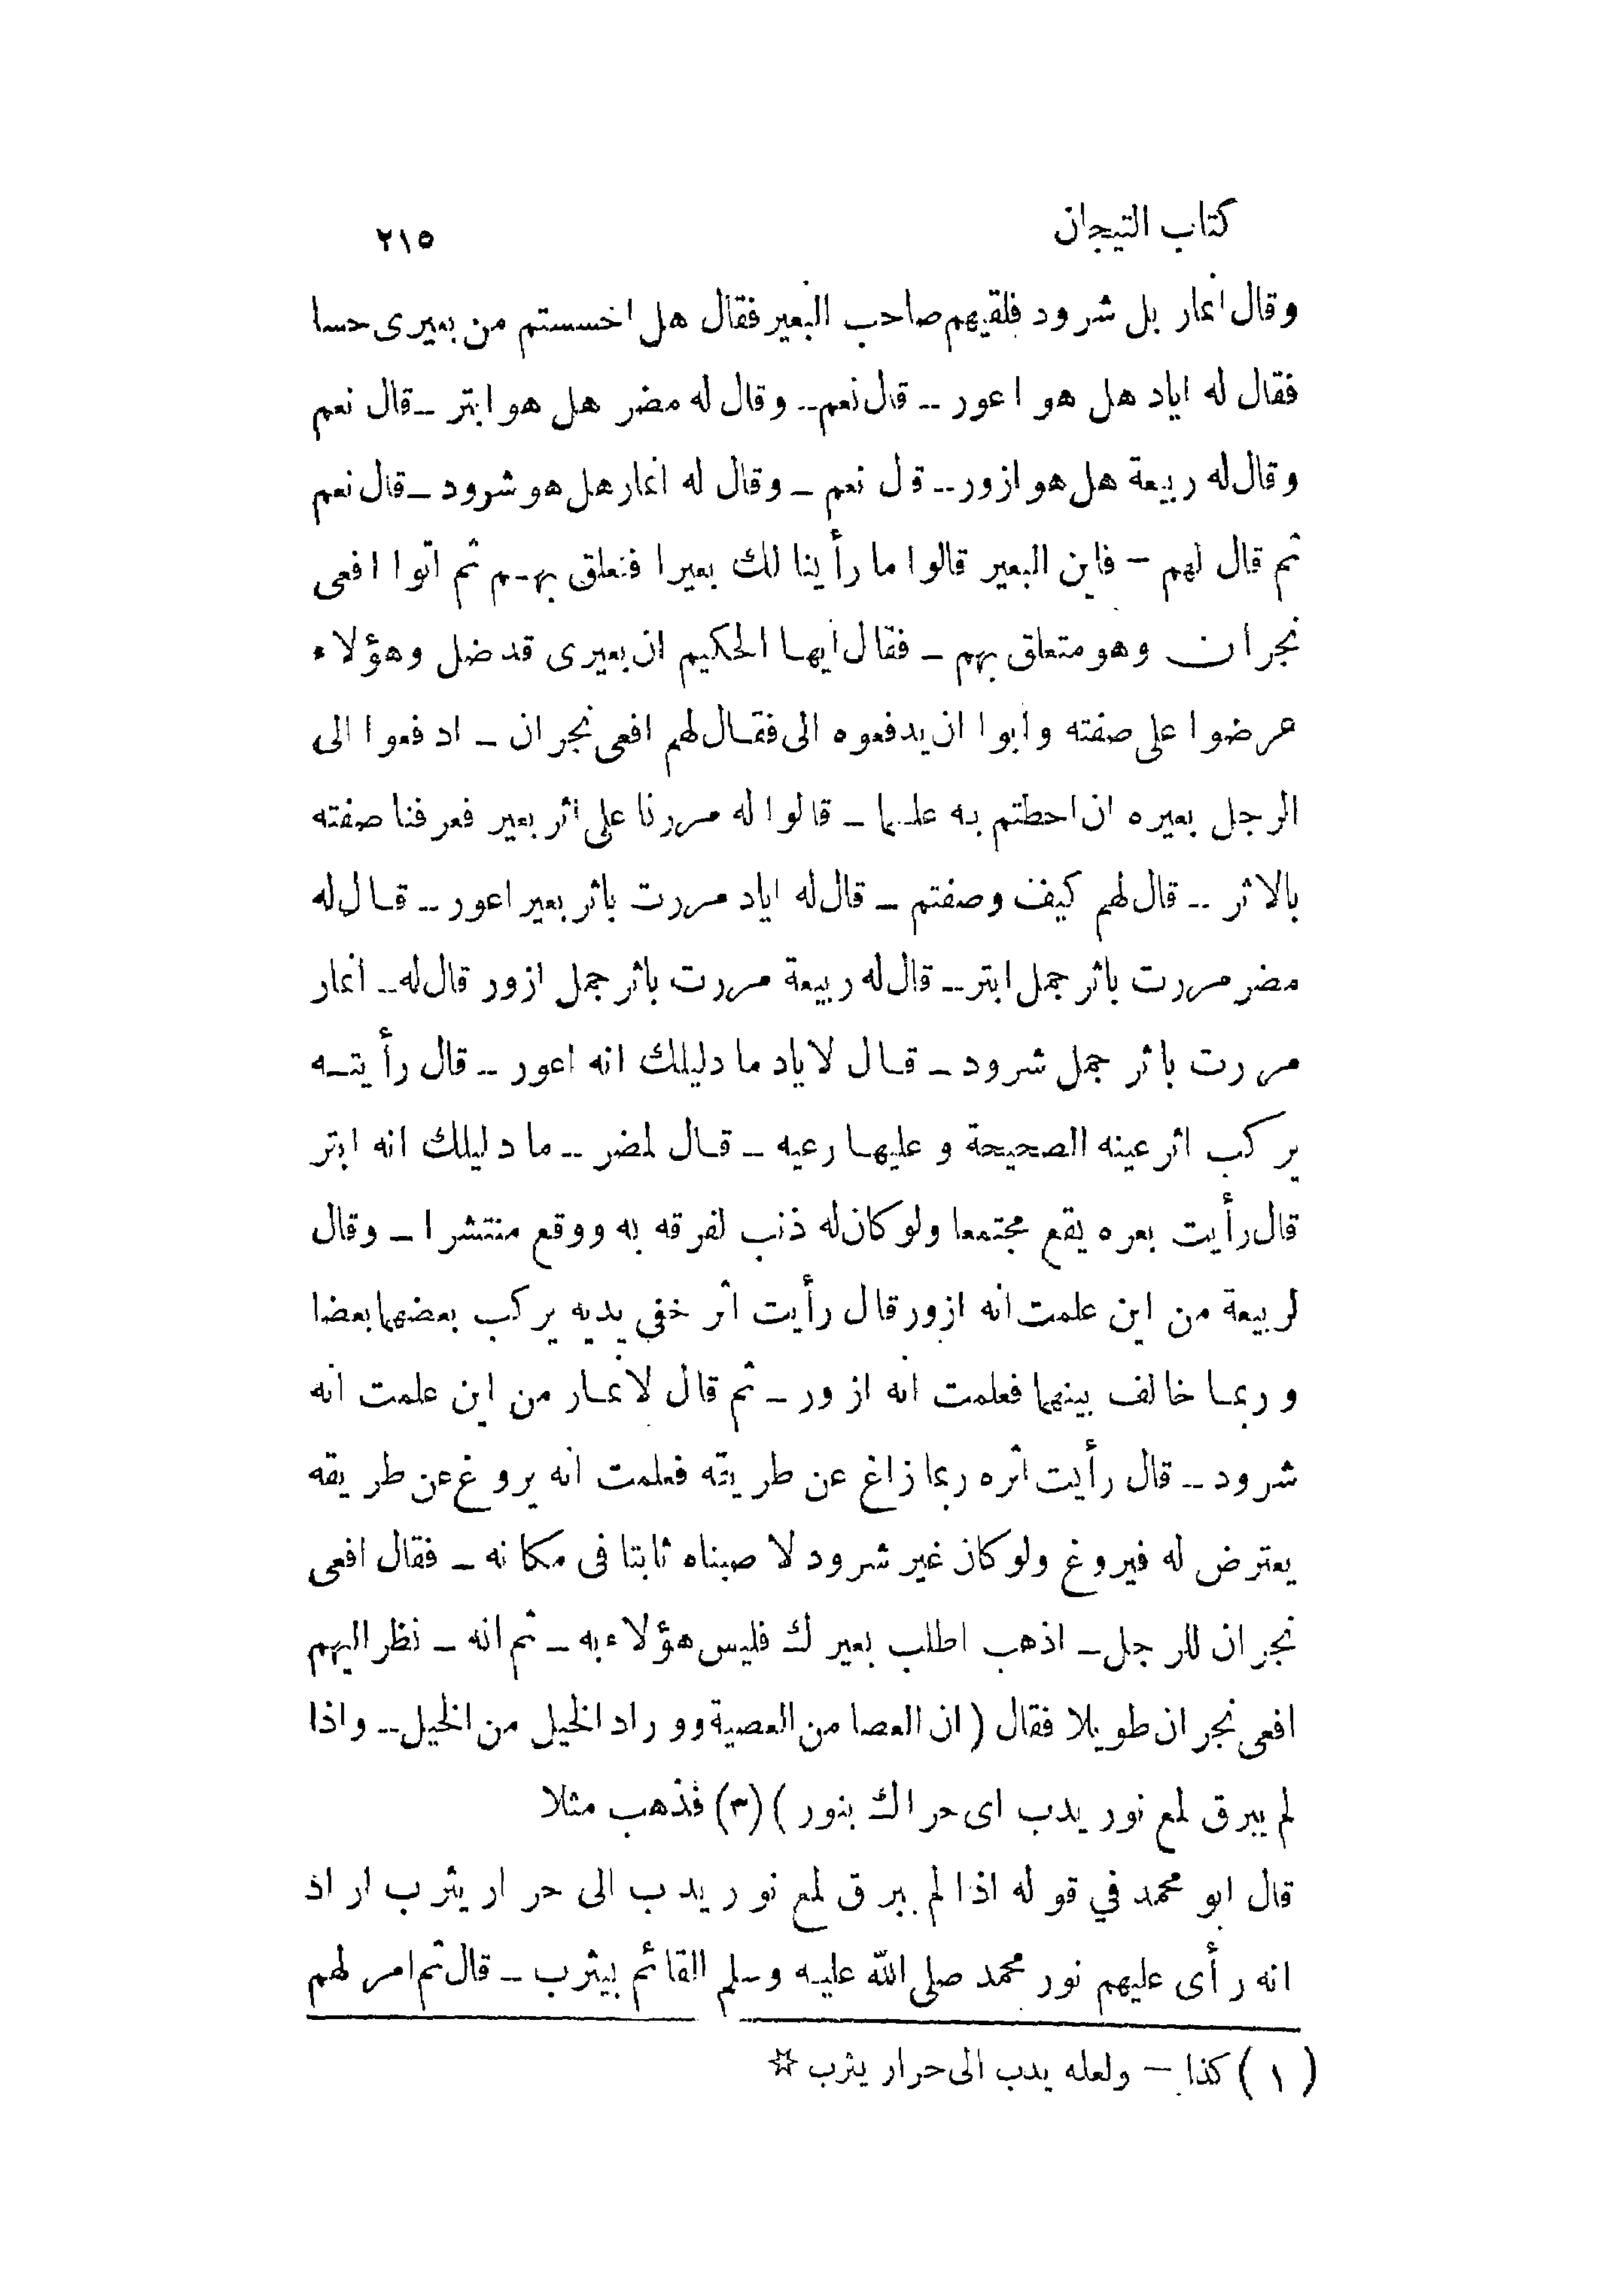 كتاب التيجان ٢١٥
وقال انمار بل شرود فلقيهم صاحب البعير فقال هل اخسستم من بعيرى حسا
فقال له اياد هل هو اعور -- قال نعم -- وقال له مضر هل هو ابتر -- قال نعم
وقال له ربيعة هل هو ازور -- قال نعم -- وقال له انمار هل هو شرود -- قال نعم
ثم قال لهم -- فاين البعير قالوا ما رأينا لك بعيرا فتعلق بهم ثم اتوا افعى
نجران وهو متعلق بهم -- فقال أيها الحكيم ان بعيرى قد ضل وهؤلاء
عرضوا على صفته وأبوا ان يدفعوه الى فقال لهم افعى نجران -- ادفعوا الى
الرجل بعيره ان احطتم به علما -- قالوا له مررنا على اثر بعير فعرفنا صفته
بالاثر -- قال لهم كيف وصفتم -- قال له اياد مررت باثر بعير اعور -- قال له
مضر مررت باثر جمل ابتر -- قال له ربيعة مررت باثر جمل ازور قال له -- انمار
مررت باثر جمل شرود -- قال لاياد ما دليلك انه اعور -- قال رأيته
يركب اثر عينه الصحيحة وعليها رعيه -- قال لمضر -- ما دليلك انه ابتر
قال رأيت بعره يقع مجتمعا ولو كان له ذنب لفرقه به ووقع منتشرا -- وقال
لربيعة من اين علمت انه ازور قال رأيت اثر خفى يديه يركب بعضهما بعضا
وربما خالف بينهما فعلمت انه ازور -- ثم قال لانمار من اين علمت انه
شرود -- قال رأيت اثره ربما زاغ عن طريقه فعلمت انه يروغ عن طريقه
يعترض له فيروغ ولو كان غير شرود لا صبناه ثابتا فى مكانه -- فقال افعى
نجران للرجل -- اذهب اطلب بعيرك فليس هؤلاء به -- ثم انه -- نظر اليهم
افعى نجران طويلا فقال (ان العصا من العصية ووراد الخيل من الخيل -- واذا
لم يبرق لمع نور يدب اى حراك بنور) (٣) فذهب مثلا
قال ابو محمد في قوله اذا لم يبرق لمع نور يدب الى حرار يثرب اراد
انه رأى عليهم نور محمد صلى الله عليه وسلم القائم بيثرب -- قال ثم امر لهم
(١) كذا -- ولعله يدب الى حرار يثرب ☆